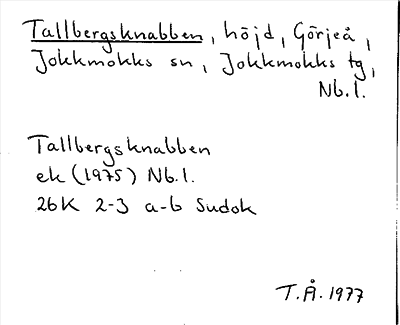 Tallbergsknabben, höjd, Görjeå,
Jokkmokks sn, Jokkmokks tg,
Nb.l.
Tallbergsknabben
ek (1975) Nb.l.
26K 2-3 a-b Sudok
T.Å. 1977